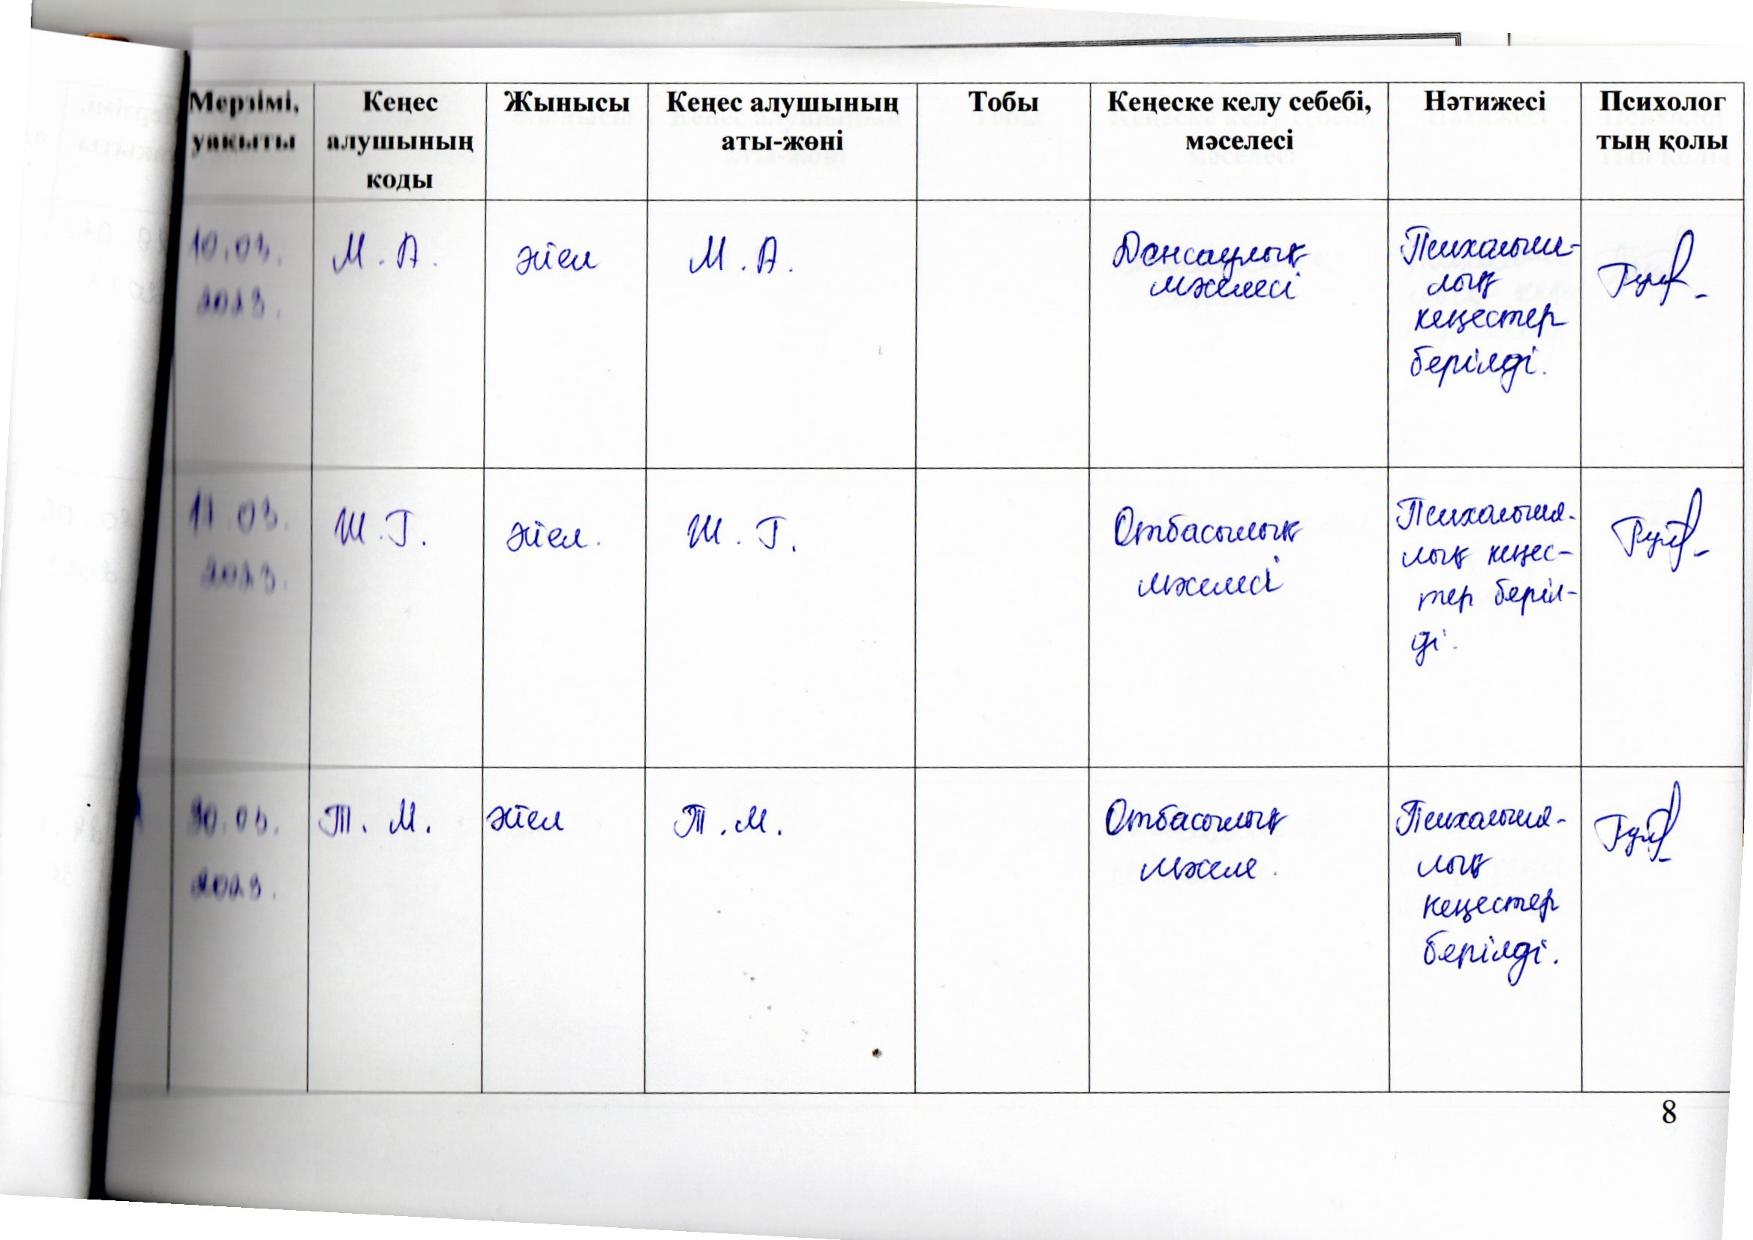 Мерзімі, уақыты
Кеңес алушының коды
Жынысы
Кеңес алушының аты-жөні
Тобы
Кеңеске келу себебі, мәселесі
Нәтижесі
Психолог тың қолы
10.03.
2023.
М. А.
әйел
М. А.
Денсаулық
мәселесі
Психология-
лық
кеңестер
берілді.
17.03.
2023.
Ш. Г.
әйел.
Ш. Г.
Отбасылық
мәселесі
Психология-
лық кеңес-
тер беріл-
ді.
30.03.
2023.
Т. М.
әйел
Т. М.
Отбасылық
мәселе.
Психология-
лық
кеңестер
берілді.
8